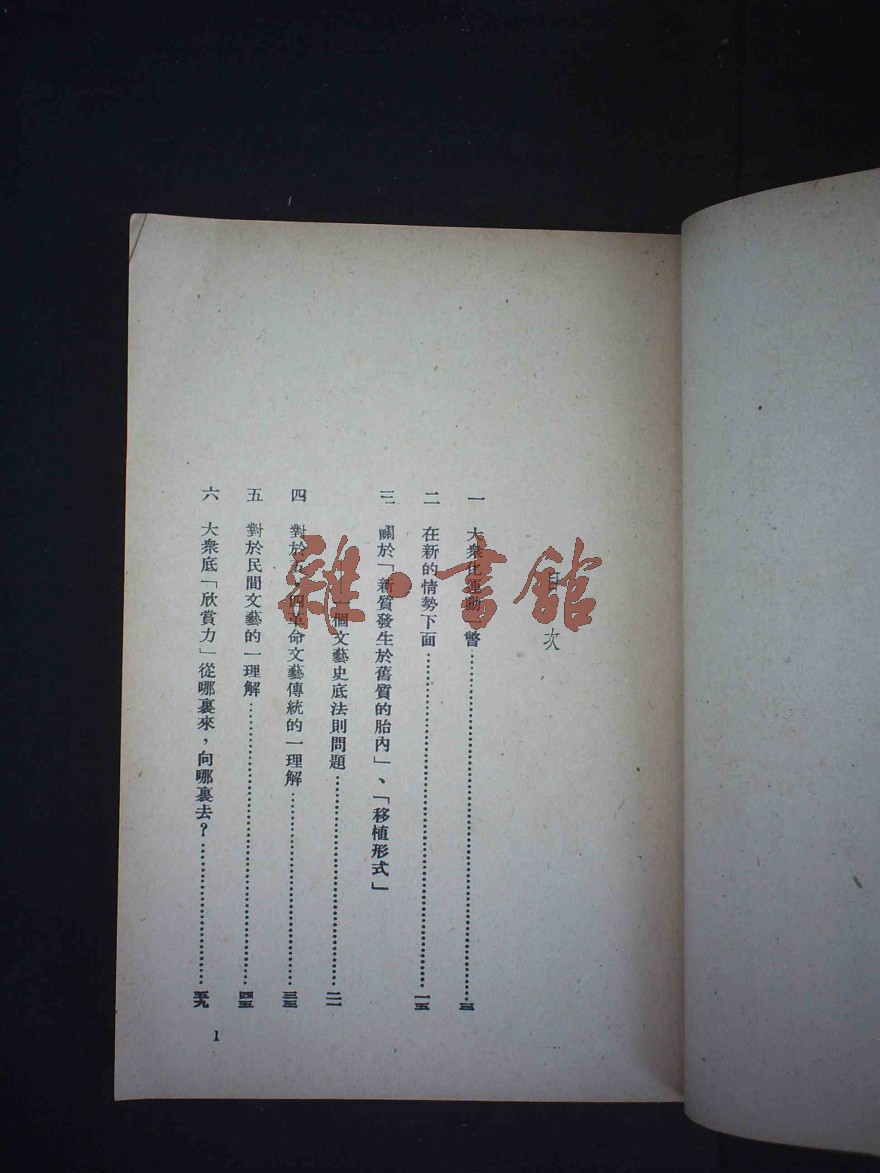 目次
一 大衆化運動一瞥……三
二 在新的情勢下面……一五
三 關於「新質發生於舊質的胎內」、「移植形式」
——一個文藝史底法則問題……二一
四 對於五・四革命文藝傳統的一理解……三三
五 對於民間文藝的一理解……四五
六 大衆底「欣賞力」從哪裏來，向哪裏去？……五九
1
雜・書館